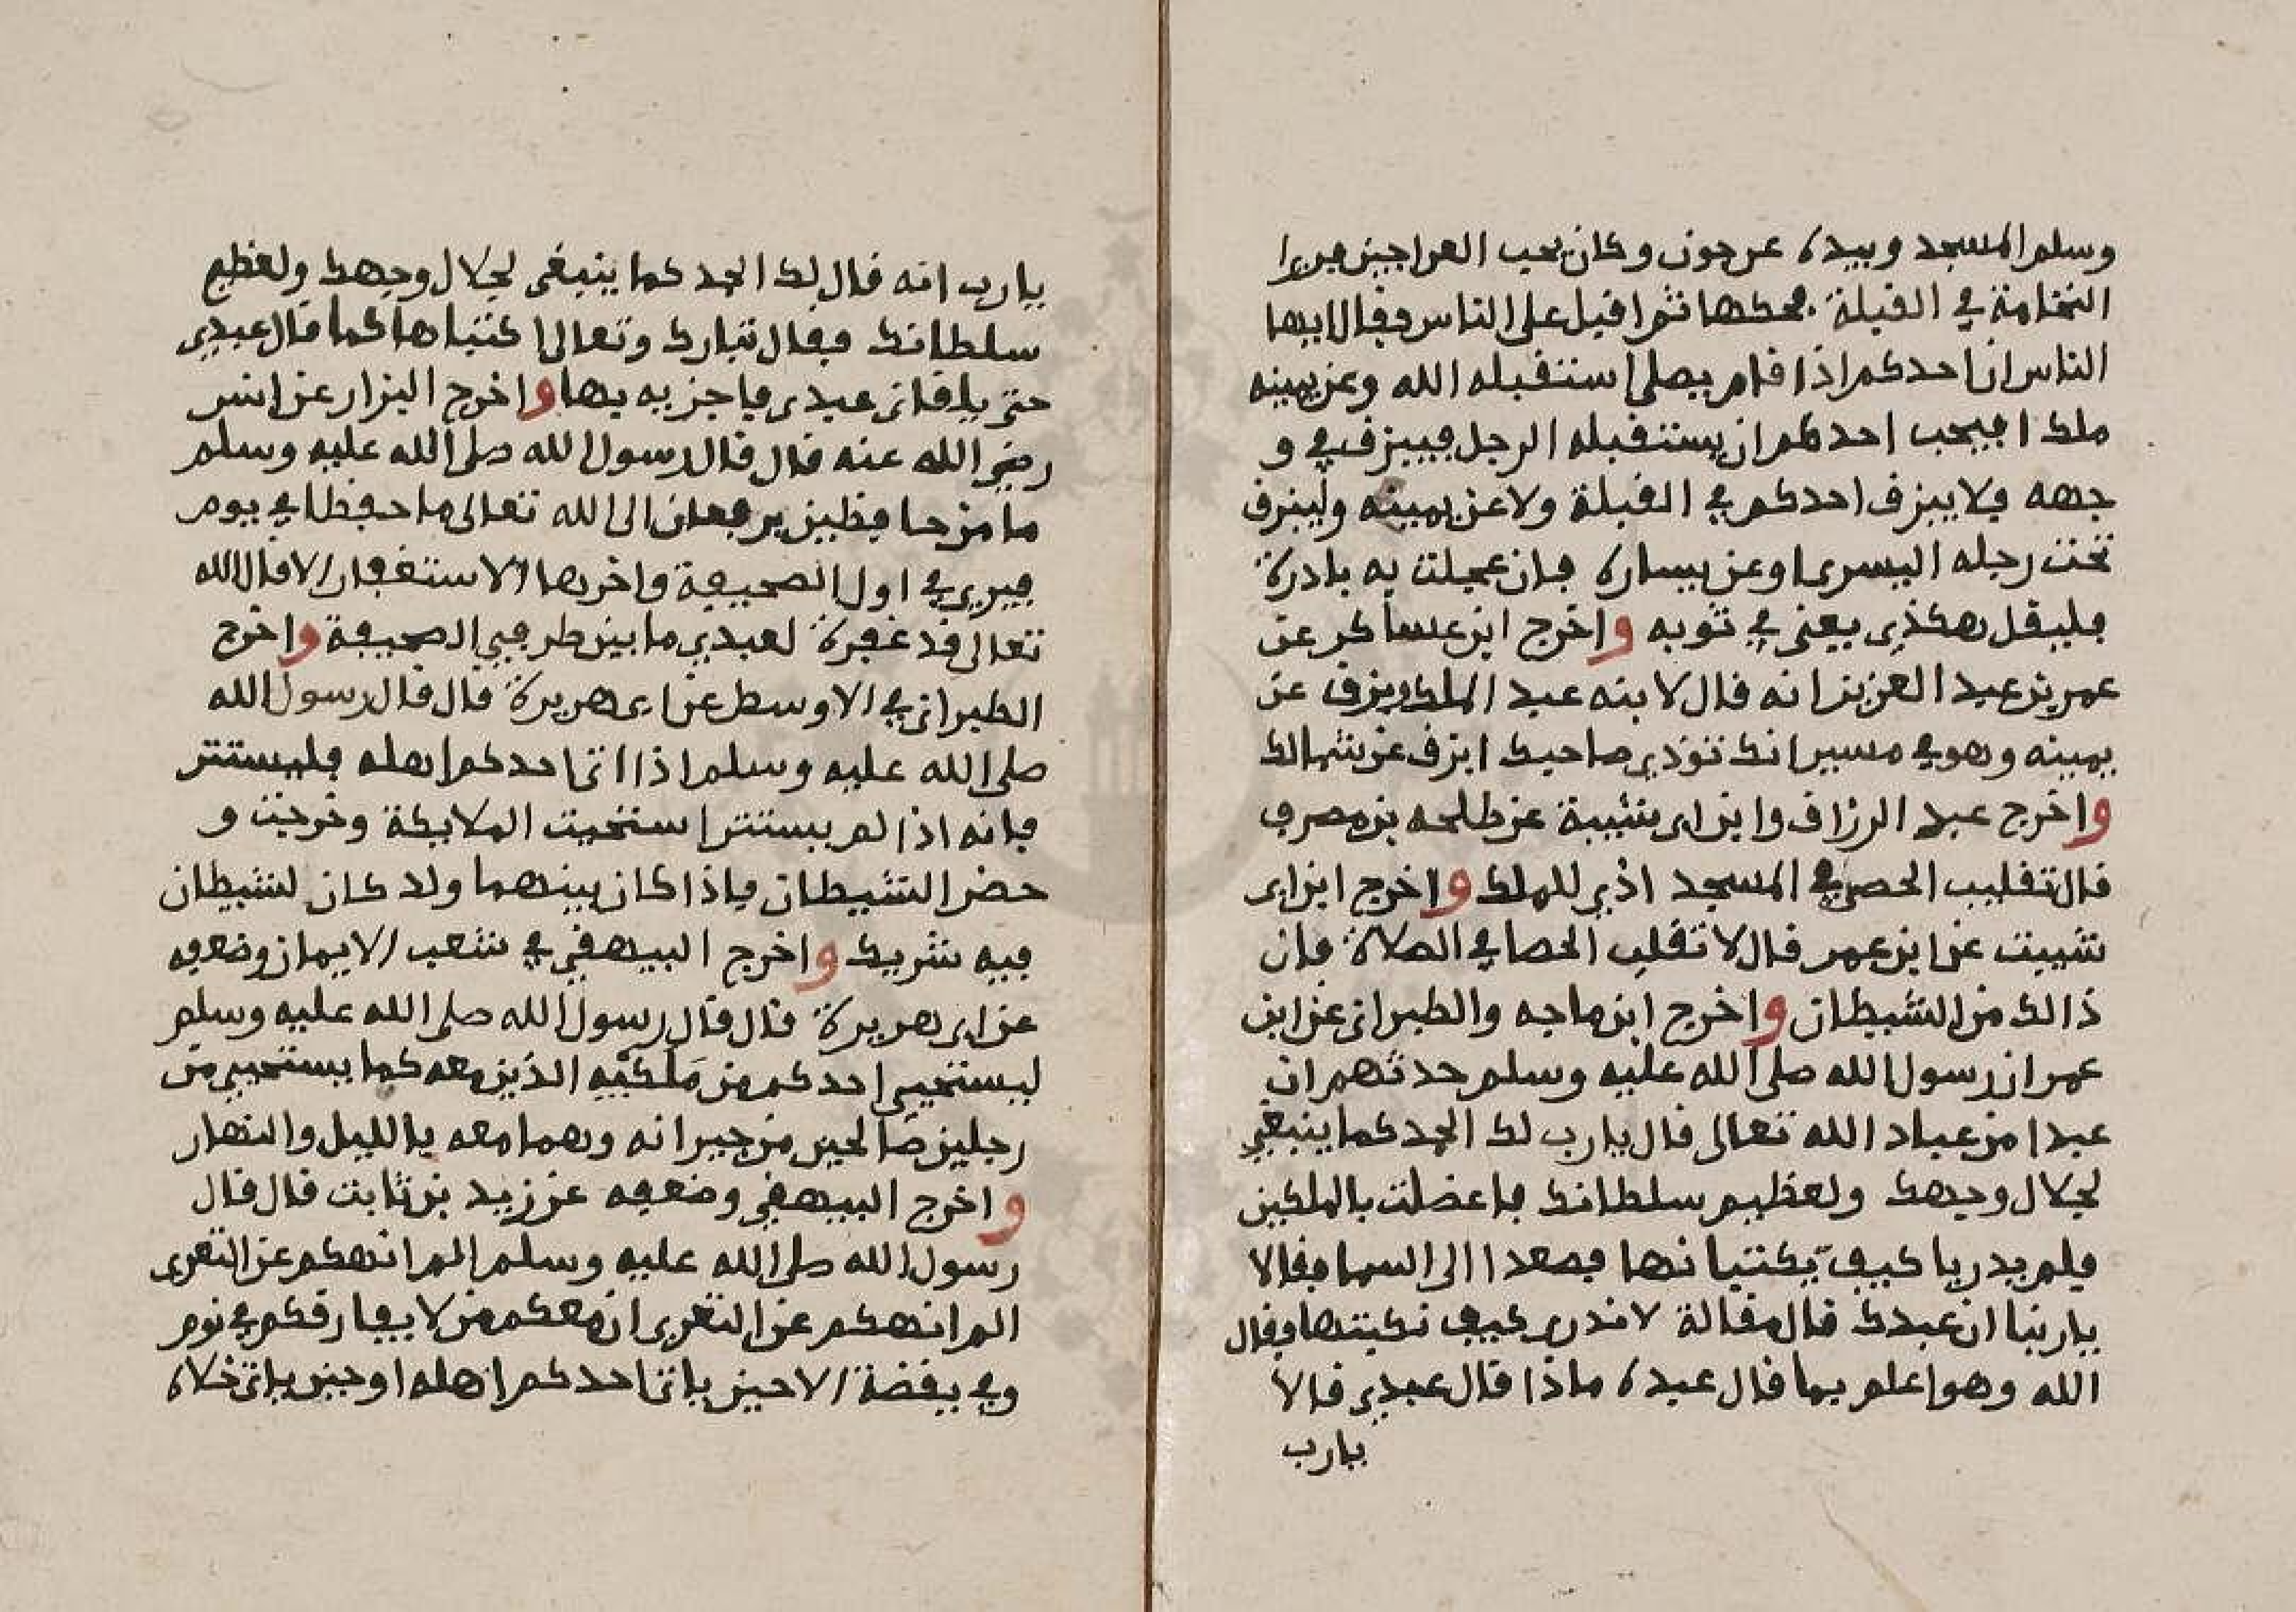 وسلم المسجد وبيده عرجون وكان يحب العراجين فيرا
النخامة في القبلة فحكها ثم اقبل على الناس فقال ايها
الناس ان احدكم اذا قام يصلي استقبله الله وعن يمينه
ملك افيحب احدكم ان يستقبله الرجل فيبزق في و
جهه فلا يبزق احدكم في القبلة ولا عن يمينه وليبزق
تحت رجله اليسرى او عن يساره فان عجلت به بادرة
فليقل هكذى يعني في ثوبه واخرج ابن عساكر عن
عمر بن عبد العزيز انه قال لابنه عبد الملك يبزق عن
يمينه وهو في مسير انك توذي صاحبك ابزق عن شمالك
واخرج عبد الرزاق وابن ابى شيبة عن طلحه بن مصرف
قال تقليب الحصى في المسجد اذى للملك واخرج ابن ابى
شيبت عن ابن عمر قال لا تقلب الحصا في الصلاة فان
ذالك من الشيطان واخرج ابن ماجه والطبرانى عن ابن
عمر ان رسول الله صلى الله عليه وسلم حدثهم ان
عبدا من عباد الله تعالى قال يا رب لك الحمد كما ينبغي
لجلال وجهك ولعظيم سلطانك فاعضلت بالملكين
فلم يدريا كيف يكتبانها فصعدا الى السما فقالا
يا ربنا ان عبدك قال مقالة لا ندرى كيف نكتبها فقال
الله وهو اعلم بما قال عبده ماذا قال عبدي قالا
يا رب
يا رب انه قال لك الحمد كما ينبغى لجلال وجهك ولعظيم
سلطانك فقال تبارك وتعالى اكتباها كما قال عبدي
حتى يلقانى عبدى فاجزيه بها واخرج البزار عن انس
رضى الله عنه قال قال رسول الله صلى الله عليه وسلم
ما من حافظين يرفعان الى الله تعالى ما حفظا في يوم
فيرى في اول الصحيفة واخرها الاستغفار الا قال الله
تعالى قد غفرة لعبدي ما بين طرفي الصحيفة واخرج
الطبرانى في الاوسط عن ابى هريرة قال قال رسول الله
صلى الله عليه وسلم اذا اتى احدكم اهله فليستتر
فانه اذا لم يستتر استحيت الملايكة وخرجت و
حضر الشيطان فاذا كان بينهما ولد كان لشيطان
فيه شريك واخرج البيهقي في شعب الايمان وضعفه
عن ابى هريرة قال قال رسول الله صلى الله عليه وسلم
ليستحيي احدكم من ملكيه الذين معه كما يستحيي من
رجلين صالحين من جيرانه وهما معه باالليل والنهار
واخرج البيهقي وضعفه عن زيد بن ثابت قال قال
رسول الله صلى الله عليه وسلم الم انهكم عن التعرى
الم انهكم عن التعرى ان معكم من لا يفارقكم في نوم
وفي يقضة الا حين ياتى احدكم اهله او حين ياتى خلاه